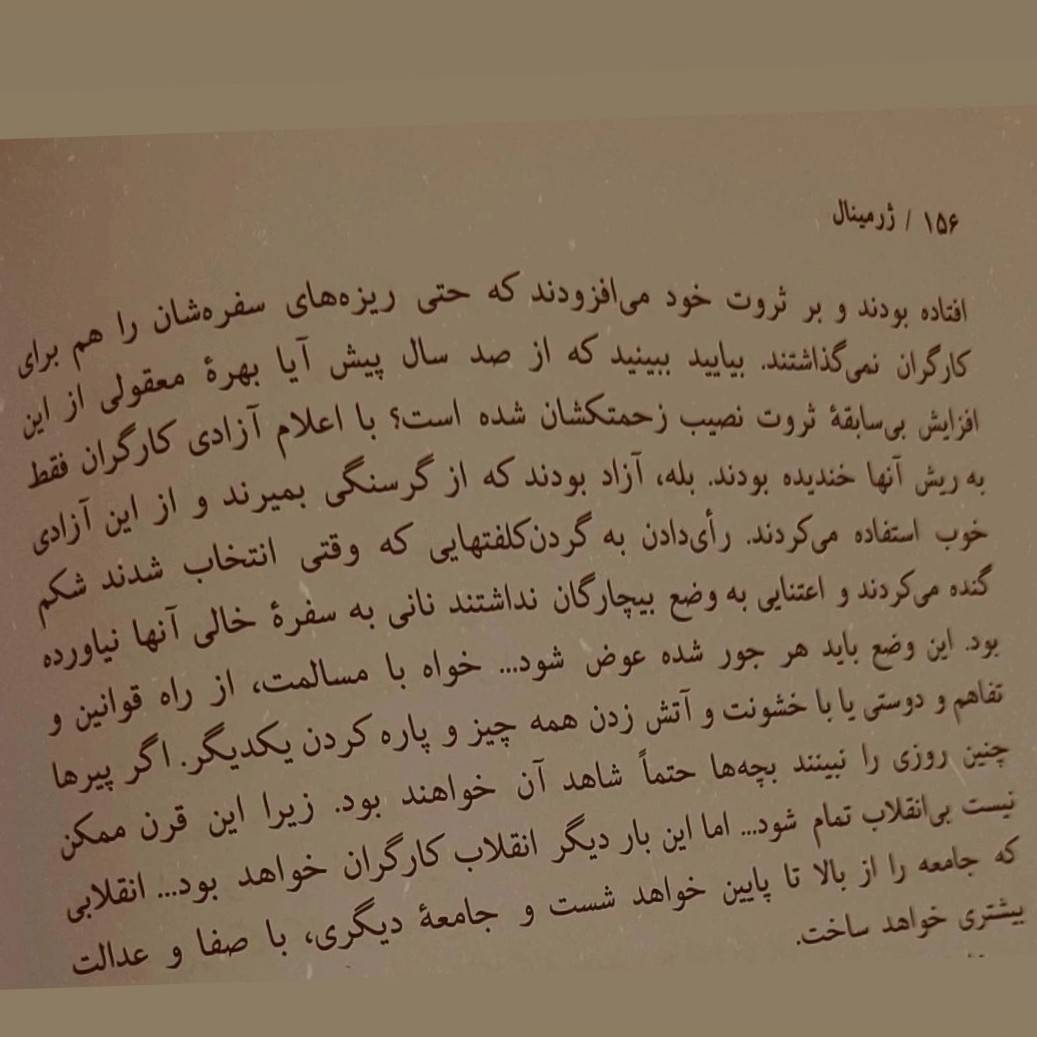 ۱۵۶ / ژرمینال
افتاده بودند و بر ثروت خود می‌افزودند که حتی ریزه‌های سفره‌شان را هم برای
کارگران نمی‌گذاشتند. بیایید ببینید که از صد سال پیش آیا بهرهٔ معقولی از این
افزایش بی‌سابقهٔ ثروت نصیب زحمتکشان شده است؟ با اعلام آزادی کارگران فقط
به ریش آنها خندیده بودند. بله، آزاد بودند که از گرسنگی بمیرند و از این آزادی
خوب استفاده می‌کردند. رأی‌دادن به گردن‌کلفتهایی که وقتی انتخاب شدند شکم
گنده می‌کردند و اعتنایی به وضع بیچارگان نداشتند نانی به سفرهٔ خالی آنها نیاورده
بود. این وضع باید هر جور شده عوض شود... خواه با مسالمت، از راه قوانین و
تفاهم و دوستی یا با خشونت و آتش زدن همه چیز و پاره کردن یکدیگر. اگر پیرها
چنین روزی را نبینند بچه‌ها حتماً شاهد آن خواهند بود. زیرا این قرن ممکن
نیست بی‌انقلاب تمام شود... اما این بار دیگر انقلاب کارگران خواهد بود... انقلابی
که جامعه را از بالا تا پایین خواهد شست و جامعهٔ دیگری، با صفا و عدالت
بیشتری خواهد ساخت.